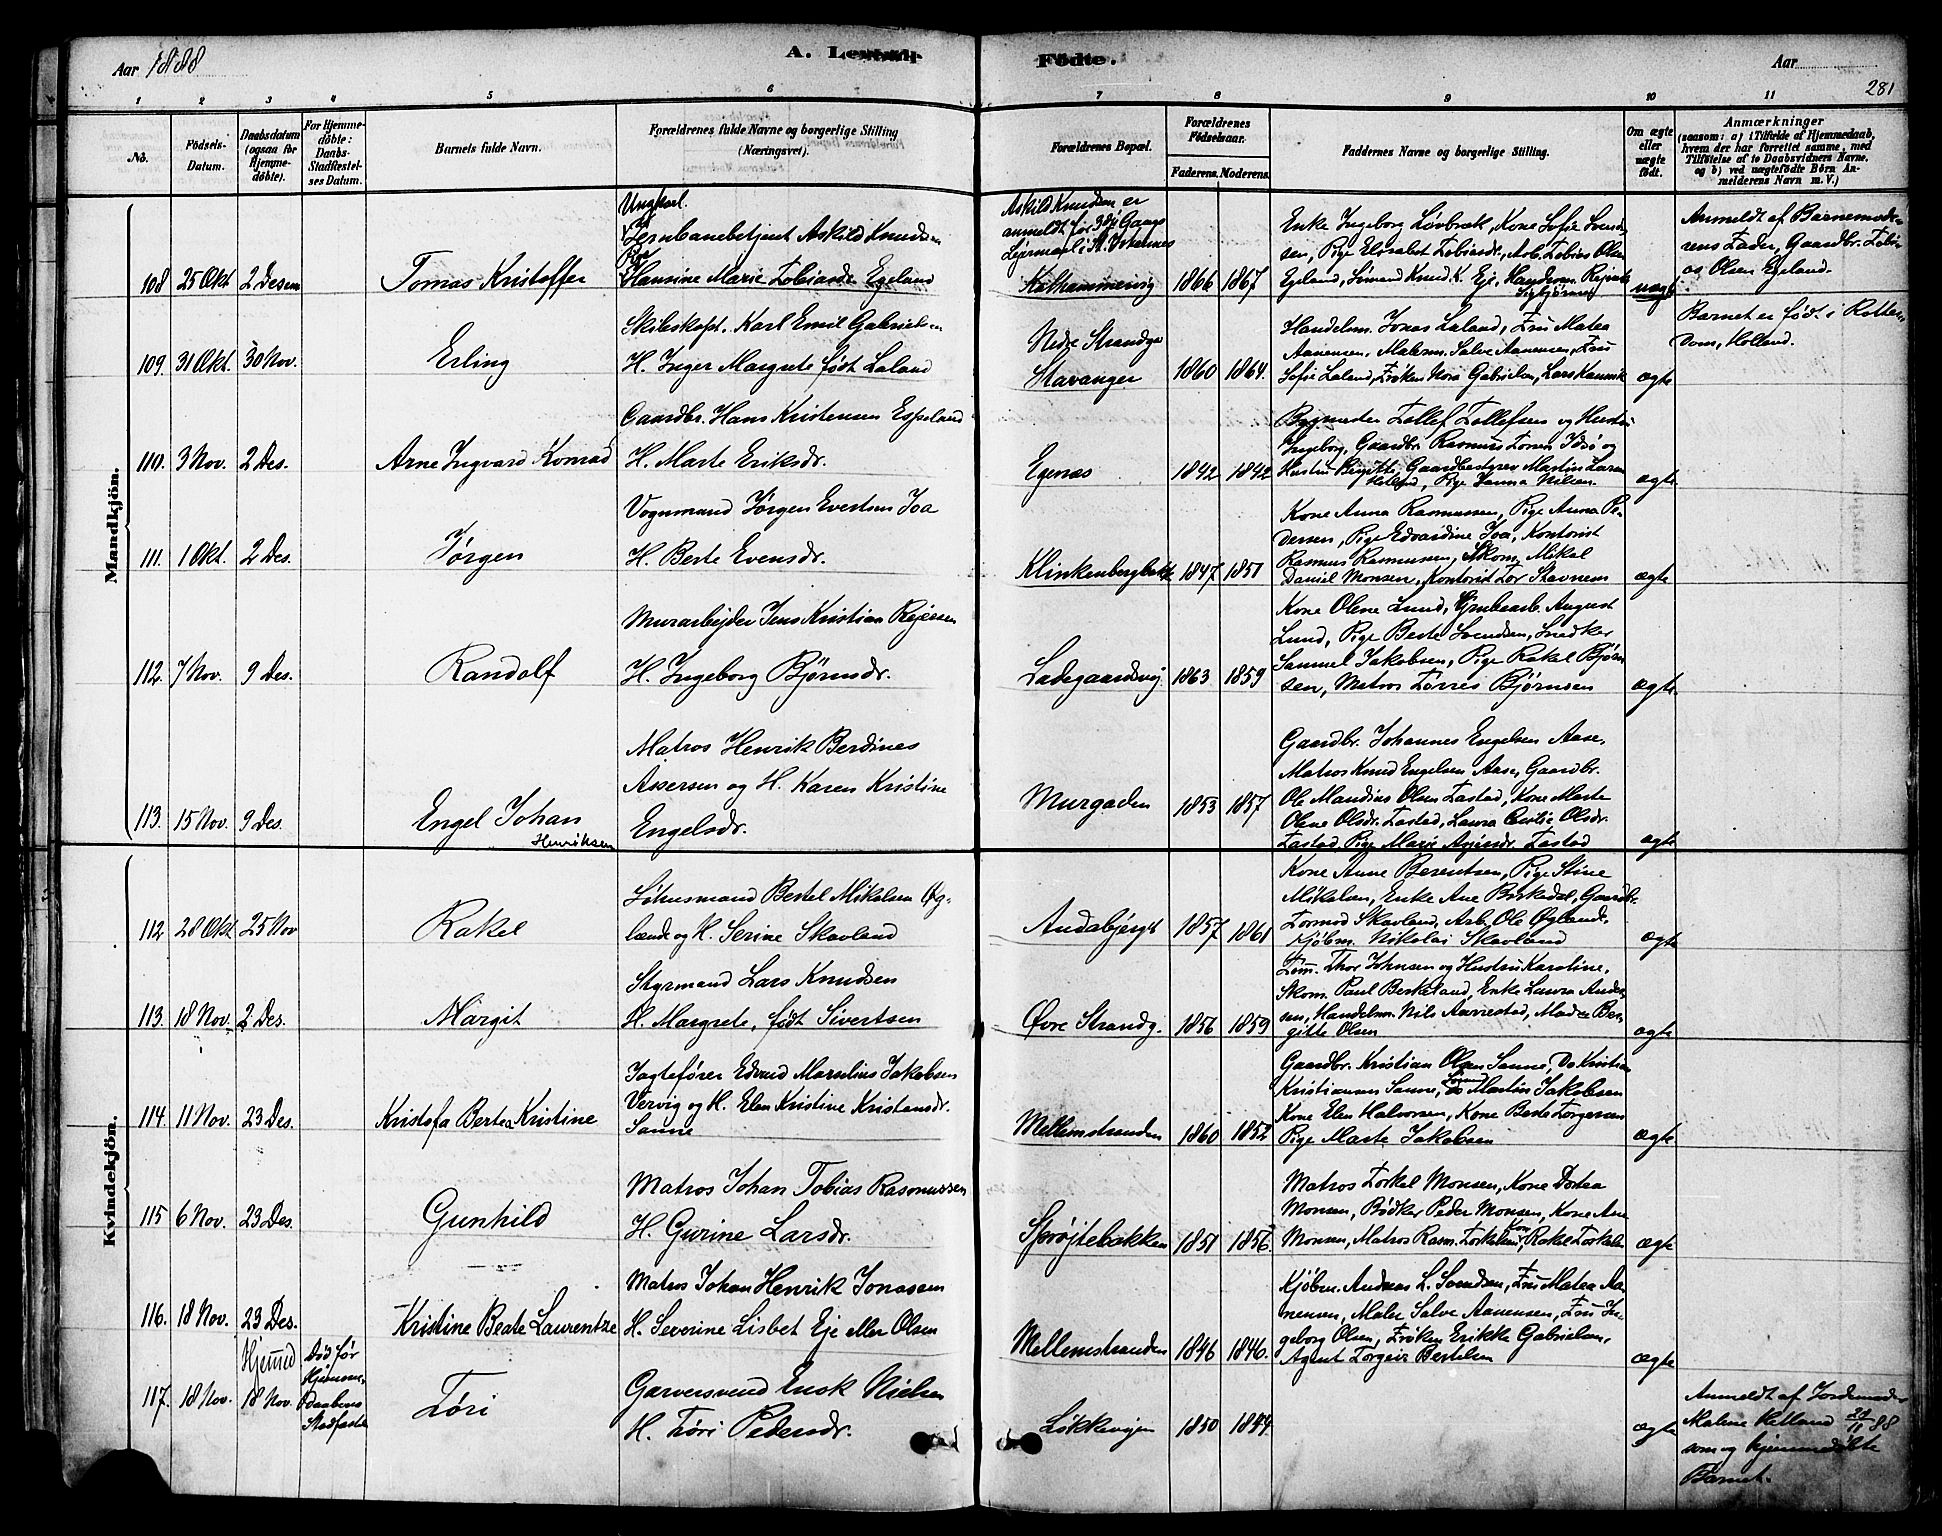 Aar 1888
A. Levende Fødte.
Aar
281
1 2 3 4 5 6 7 8 9 10 11
No.
Fødsels-
Datum.
Daabsdatum
(ogsaa for
Hjemme-
døbte).
For Hjemme-
døbte:
Daabs-
Stadfæstel-
ses Datum.
Barnets fulde Navn.
Forældrenes fulde Navne og borgerlige Stilling
(Næringsvei).
Forældrenes Bopæl.
Forældrenes
Fødselsaar.
Faderens. Moderens.
Faddernes Navne og borgerlige Stilling.
Om ægte
eller
uægte
født.
Anmærkninger
(saasom: a) i Tilfælde af Hjemmedaab,
hvem der har forrettet samme, med
Tilføielse af to Daabsvidners Navne.
og b) ved uægtefødte Børn An-
melderens Navn m. V.)
Mandkjön.
108 25 Okt 2 Desem
Tomas Kristoffer
Ungkarl.
Jernbanebetjent Askild Knudsen
Pige
Hansine Marie Tobiasdr Egeland
Askild Knudsen er
anmeldt for 3dj Gang
Lejermaal i St. Johannes
Kathammervig 1866 1867
Enke Ingeborg Løvbrak, Kone Sofie Svend-
sen, Pige Elisabet Tobiasdr, Arb. Tobias Olsen
Egeland, Simend Knud K. Eje, Handelsm. Rejnert
Sigbjørnsen
uægte
Anmeldt af Barnemode-
rens Fader, Gaardbr. Tobi-
as Olsen Egeland.
109. 31 Okt. 30 Nov.
Erling
Skibskapt. Karl Emil Gabrielsen
H. Inger Margrete født Laland
Nedre Strandga
Stavanger 1860 1864.
Handelsm. Jonas Laland, Fru Matea
Aanensen, Malerm. Salve Aanensen, Fru
Sofie Laland, Frøken Nora Gabrielsen, Lars Kannik
ægte
Barnet er født i Rotter-
dam, Holland.
110. 3 Nov. 2 Des.
Arne Ingvard Konrad
Gaardbr. Hans Kristensen Espeland
H. Marte Eriksdr.
Egenæs 1842 1842
Bygmester Tollef Tollefsen og Hustru
Ingeborg, Gaardbr. Rasmus Larsen Idsø og
Hustru Birgitte, Gaardbestyrer Martin Larsen
Hetland, Pige Hanna Nilsen.
ægte
111. 1 Okt. 2 Des.
Jørgen
Vognmand Jørgen Evertsen Joa
H. Berte Evensdr.
Klinkenbergbakk 1847 1851
Kone Anna Rasmussen, Pige Anna Pe-
dersen, Pige Edvardine Joa, Kontorist
Rasmus Rasmussen, Skom. Mikal
Daniel Monsen, Kontorist Tor Stavnem
ægte
112. 7 Nov. 9 Des.
Randolf
Murarbejder Jens Kristian Rejersen
H. Ingeborg Bjørnsdr.
Ladegaardsvej. 1863 1859
Kone Olene Lund, Grubearb. August
Lund, Pige Berte Svendsen, Snedker
Samuel Jakobsen, Pige Rakel Bjørn
sen, Matros Torres Bjørnsen
ægte.
113. 15 Nov. 9 Des.
Engel Johan
Henriksen
Matros Henrik Berdines
Assersen og H. Karen Kristine
Engelsdr.
Murgaden 1853 1857
Gaardbr. Johannes Engelsen Aase,
Matros Knud Engelsen Aase, Gaardbr.
Ole Mandius Olsen Tastad, Kone Marte
Olene Olsdr. Tastad, Laura Cecilie Olsdr.
Tastad, Pige Marie Asjensdr. Tastad
ægte
Kvindekjön.
112 28 Okt 25 Nov
Rakel
Løhusmand Bertel Mikalsen Øg-
lænd og H. Serine Skavland
Andabjerget 1857 1861
Kone Anne Berentsen, Pige Stine
Mikalsen, Enke Ane Birkedal, Gaardbr.
Tormod Skavland, Arb. Ole Øgland
Kjøbm. Nikolai Skavland
ægte
113. 18 Nov. 2 Des.
Margit
Styrmand Lars Knudsen
H. Margrete, født Sivertsen
Øvre Strandg. 1856 1859
Tøm. Thor Johnsen og Hustru Karoline,
Skom. Paul Berkeland, Enke Laura Ander-
sen, Handelsm. Nils Aarrestad, Madam Ber-
gitte Olsen
ægte
114. 11 Nov. 23 Des.
Kristofa Bertea Kristine
Jagtefører Edvard Marselius Jakobsen
Vervig og H. Elen Kristine Kristensdr.
Sanne
Mellemstranden 1860 1852
Gaardbr. Kristian Olsen Sanne, Do Kristian
Kristiansen Sanne, Lods Martin Jakobsen
Kone Elen Halvorsen, Kone Berte Torgersen
Pige Marte Jakobsen
ægte
115 6 Nov. 23 Des.
Gunhild
Matros Johan Tobias Rasmussen
H. Gurine Larsdr.
Sprøjtebakken 1851 1856
Matros Torkel Monsen, Kone Dortea
Monsen, Bødker Peder Monsen, Kone Ane
Monsen, Matros Rasm. Torkelsen, Kone Rakel Torkelsen
ægte
116. 18 Nov. 23 Des.
Kristine Beate Laurentze
Matros Johan Henrik Jonassen
H. Severine Lisbet Eje eller Olsen
Mellemstranden 1846 1846.
Kjøbm. Andreas L. Svendsen, Fru Matea Aa-
nensen, Maler Salve Aanensen, Fru In-
geborg Olsen, Frøken Erikke Gabrielsen,
Agent Torgeir Bertelsen
ægte
117. 18 Nov.
Hjemed
18 Nov.
Død før
Hjemme-
Daabens
Stadfæste
Tøri
Garversvend Enok Nielsen
H. Tøri Pedersdr.
Løkkevejen 1850 1844
ægte
Anmeldt af Jordemoder
Malene Hetland 20/11 88
som og hjemmedøbte
Barnet.